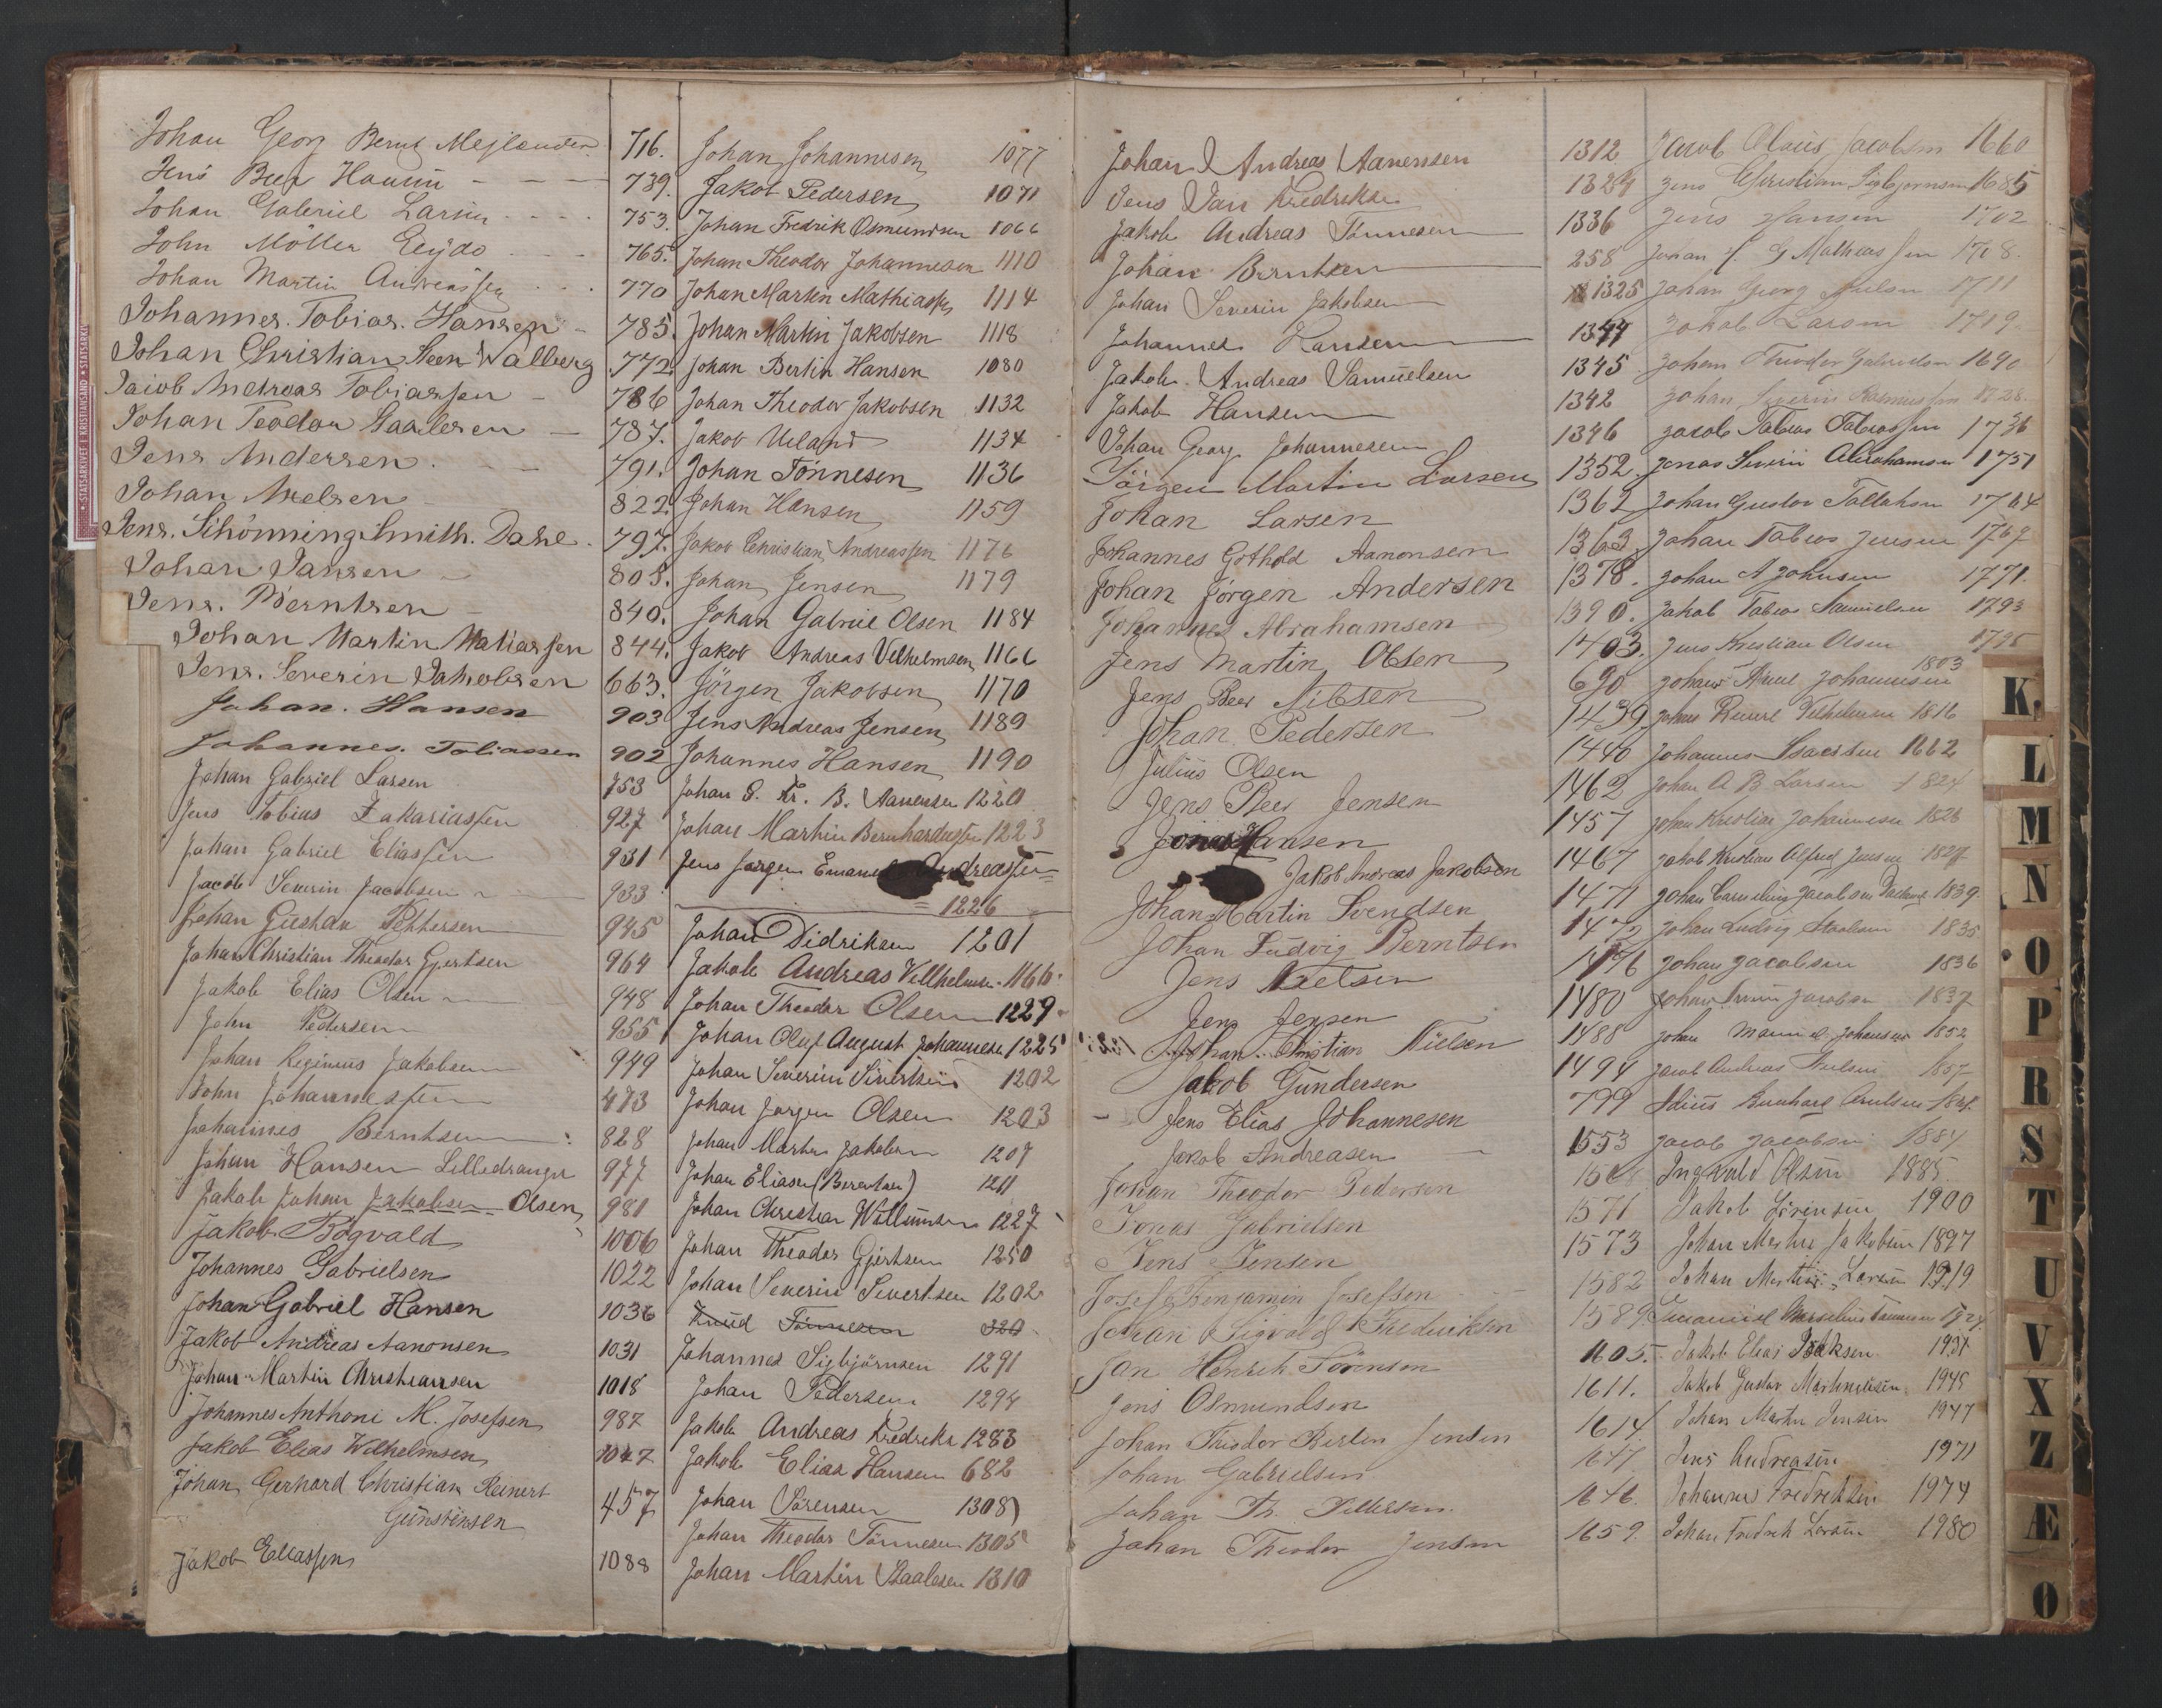 Johan Georg Bernt Mejlænder 716.
Jens Beer Hansen 739.
Johan Gabriel Larsen 753.
John Möller 765.
Johan Martin Andreassen 770
Johannes. Tobias. Hansen 785.
Johan Christian Steen Walberg 772.
Jacob Andreas Tobiassen 786
Johan Teodor Staalesen 787.
Jens Andersen. 791.
Johan Axelsen 822.
Jens. Schönning Smith. Dahl 797.
Johan Jansen 805.
Jens. Berntsen 840.
Johan Martin Matiassen 844.
Jens. Severin Jakobsen 663.
Johan. Hansen 903
Johannes. Tobiassen 902
Johan Gabriel Larsen 753
Jens Tobias Zakariassen 927
Johan Gabriel Eliassen 931
Jacob Severin Jacobsen 933
Johan Gustav Pettersen 945
Johan Christian Theodor Gjertsen 964
Jakob Elias Olsen 948
John Pedersen 955
Johan Reginius Jakobsen 949
John Johannessen 473
Johannes Berntsen 828
Johan Hansen Lilledrange 977
Jakob Johan Jakobsen Olsen 981
Jakob Bogvald 1006
Johannes Gabrielsen 1022
Johan Gabriel Hansen 1036
Jakob Andreas Aanonsen 1031
Johan Martin Christiansen 1018
Johannes Anthoni M. Josefsen 987
Jakob Elias Wilhelmsen 1047
Johan Gerhard Christian Reinert
Gunstensen 457
Jakob Eliassen 1088
Johan Johannesen 1077
Jakob Pedersen 1071
Johan Fredrik Osmundsen 1066
Johan Theodor Johannesen 1110
Johan Martin Mathiassen 1114
Johan Martin Jakobsen 1118
Johan Bertin Hansen 1080
Johan Theodor Jakobsen 1132
Jakob Ueland 1134
Johan Tönnesen 1136
Johan Hansen 1159
Jakob Christian Andreassen 1176
Johan Jensen 1179
Johan Gabriel Olsen 1184
Jakob Andreas Velhelmsen 1166
Jörgen Jakobsen 1170
Jens Andreas Jensen 1189
Johannes Hansen 1190
Johan S. Kr. B. Aanensen 1220
Johan Martin Bernhardussen 1223
Jens Jørgen Emanuel Andreassen
1226
Johan Didriksen 1201
Jakob Andreas Vilhelmsen 1166
Johan Theodor Olsen 1229
Johan Oluf August Johannesen 1225
Johan Severin Sivertsen 1202
Johan Jørgen Olsen 1203
Johan Martin Jakobsen 1207
Johan Eliasen (Berentsen) 1211
Johan Christian Willumsen 1227
Johan Theodor Gjertsen 1250
Johan Severin Sivertsen 1202
Knud Tönnesen 320
Johannes Sigbjörnsen 1291
Johan Pedersen 1294
Jakob Andreas Fredriks 1283
Jakob Elias Hansen 682
Johan Sörensen 1308
Johan Theodor Tönnesen 1305
Johan Martin Staalesen 1310
Johan Andreas Aanensen 1312
Jens Jan Fredriksen 1324
Jakob Andreas Tönnesen 1336
Johan Berntsen 258
Johan Severin Jakobsen 1325
Johannes Hansen 1344
Jakob Andreas Samuelsen 1345
Jakob Hansen 1342
Johan Georg Johannesen 1346
Jörgen Martin Larsen 1352
Johan Larsen 1362
Johannes Gothold Aanonsen 1363
Johan Jörgen Andersen 1378.
Johannes Abrahamsen 1390.
Jens Martin Olsen 1403.
Jens Beer Nilsen 690
Johan Pedersen 1439
Julius Olsen 1440
Jens Peer Jensen 1462
Jonas Hansen 1457
Jakob Andreas Jakobsen 1467
Johan Martin Svendsen 1471
Johan Ludvig Berntsen 1472
Jens Nielsen 1476
Jens Jensen 1480
Johan Christian Nielsen 1488
Jakob Gundersen 1494
Jens Elias Johannesen 799
Jakob Andreasen 1553
Johan Theodor Pedersen 1568
Jonas Gabrielsen 1571
Jens Jensen 1573
Josef Benjamin Josefsen 1582
Johan Sigvald Fredriksen 1589
Jan Henrik Sörensen 1605.
Jens Osmundsen 1611.
Johan Theodor Bertin Jensen 1614
Johan Gabrielsen 1647
Johan Th. Pettersen 1646.
Johan Theodor Jensen 1659.
Jacob Olaus Jacobsen 1660
Jens Christian Sigbjornsen 1685
Jens Hansen 1702
Johan G Mathiassen 1708.
Johan Georg Nielsen 1711
Jakob Larsen 1719
Johan Theodor Gabrielsen 1690
Johan Severin Rasmussen 1728
Jacob Tobias Tobiassen 1736
Jonas Severin Abrahamsen 1751
Johan Gustav Tallaksen 1764
Johan Tobias Jensen 1767
Johan A Johnsen 1771.
Jakob Tobias Samuelsen 1793
Jens Kristian Olsen 1795
Johan Johannesen 1803
Johan Vilhelmsen 1816
Johannes Isaksen 1662
Johan A B Larsen 1824
Johan Kristian Johannesen 1826
Jakob Kristian Alfred Jensen 1827
Johan Cornelius Jacobsen 1839.
Johan Ludvig Staalesen 1835
Johan Jacobsen 1836
Johan Jacobsen 1837
Johan Johansen 1852
Jacob Andreas Nielsen 1857
Julius Bernhard
Jacob Jacobsen 1884
Ingvald Olsen 1885
Jakob Sörensen 1900
Johan Martin Jakobsen 1897
Johan Martin Larsen 1919
Emanuel Marselius
Jakob Elias Isaksen 1931
Jakob Gustav Martiniusen 1945
Johan Martin Jensen 1947
Jens Andreasen 1971
Johannes Fredriksen 1974
Johan Fredrik Larsen 1980
K.
L
M
N
O
P
R
S
T
U
V
X
Z
Æ
Ø
STATSARKIVET I KRISTIANSAND • STATSARKIV